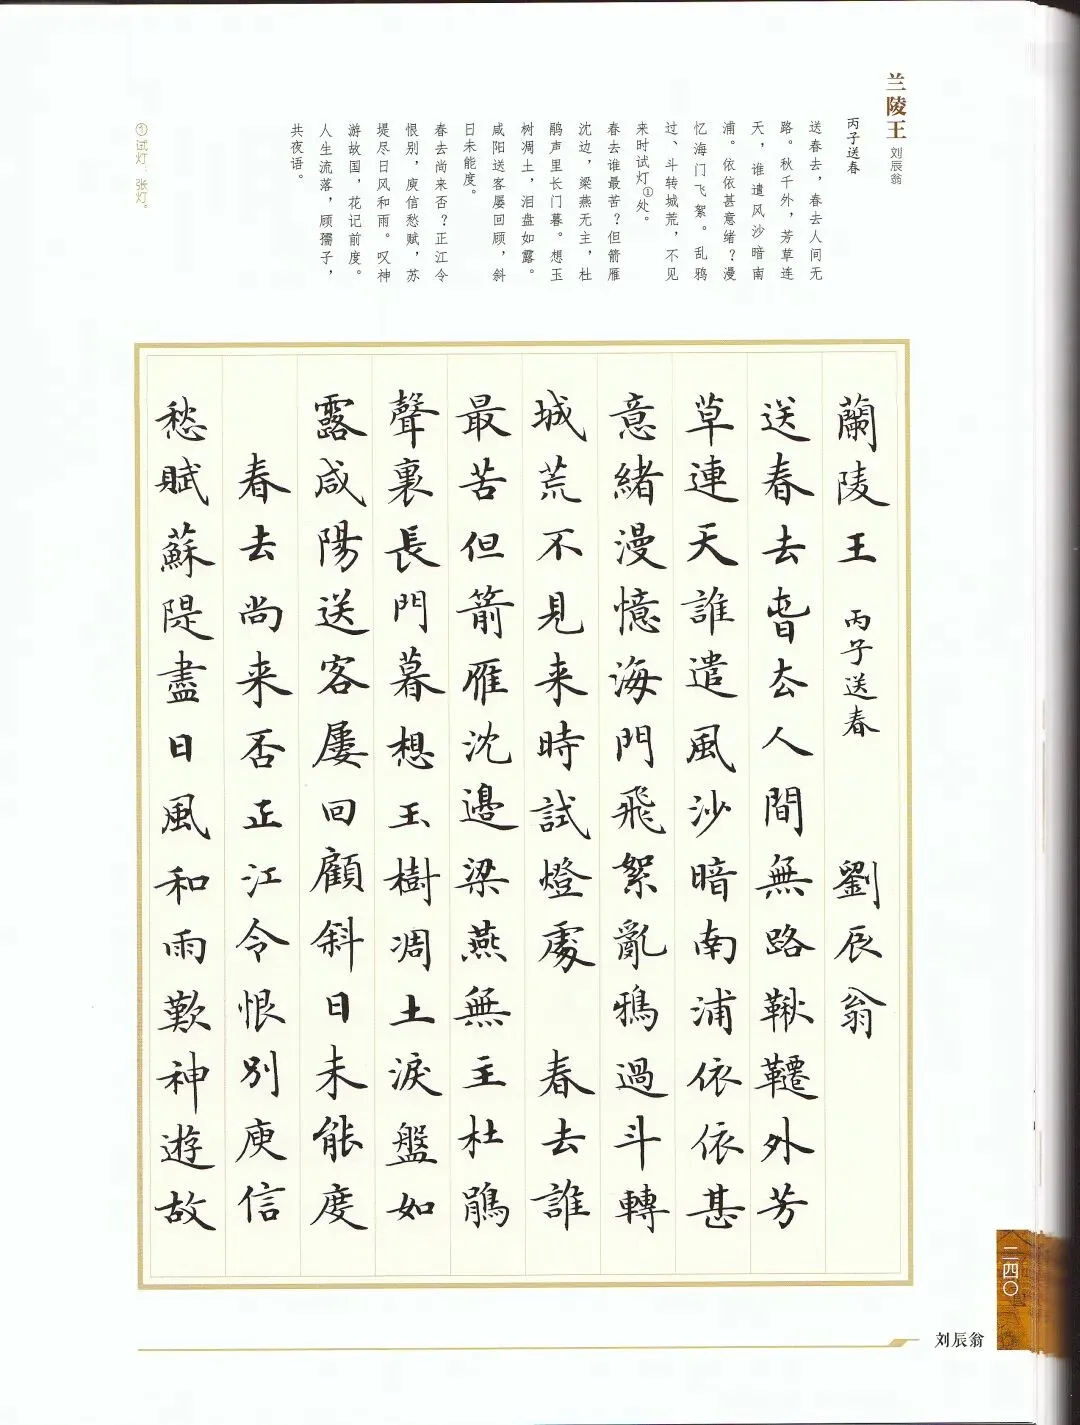 兰陵王 刘辰翁
丙子送春
送春去，春去人间无
路。秋千外，芳草连
天，谁遣风沙暗南
浦。依依甚意绪？漫
忆海门飞絮。乱鸦
过、斗转城荒，不见
来时试灯①处。
春去谁最苦？但箭雁
沈边，梁燕无主，杜
鹃声里长门暮。想玉
树凋土，泪盘如露。
咸阳送客屡回顾，斜
日未能度。
春去尚来否？正江令
恨别，庾信愁赋，苏
堤尽日风和雨。叹神
游故国，花记前度。
人生流落，顾孺子，
共夜语。
①试灯：张灯。
蘭陵王 丙子送春 劉辰翁
送春去旾厺人間無路鞦韆外芳
草連天誰遣風沙暗南浦依依甚
意緒漫憶海門飛絮亂鴉過斗轉
城荒不見来時試燈處 春去誰
最苦但箭雁沈邊梁燕無主杜鵑
聲裏長門暮想玉樹凋土淚盤如
露咸陽送客屢回顧斜日未能度
春去尚来否正江令恨別庾信
愁賦蘇隄盡日風和雨歎神遊故
二四〇
刘辰翁